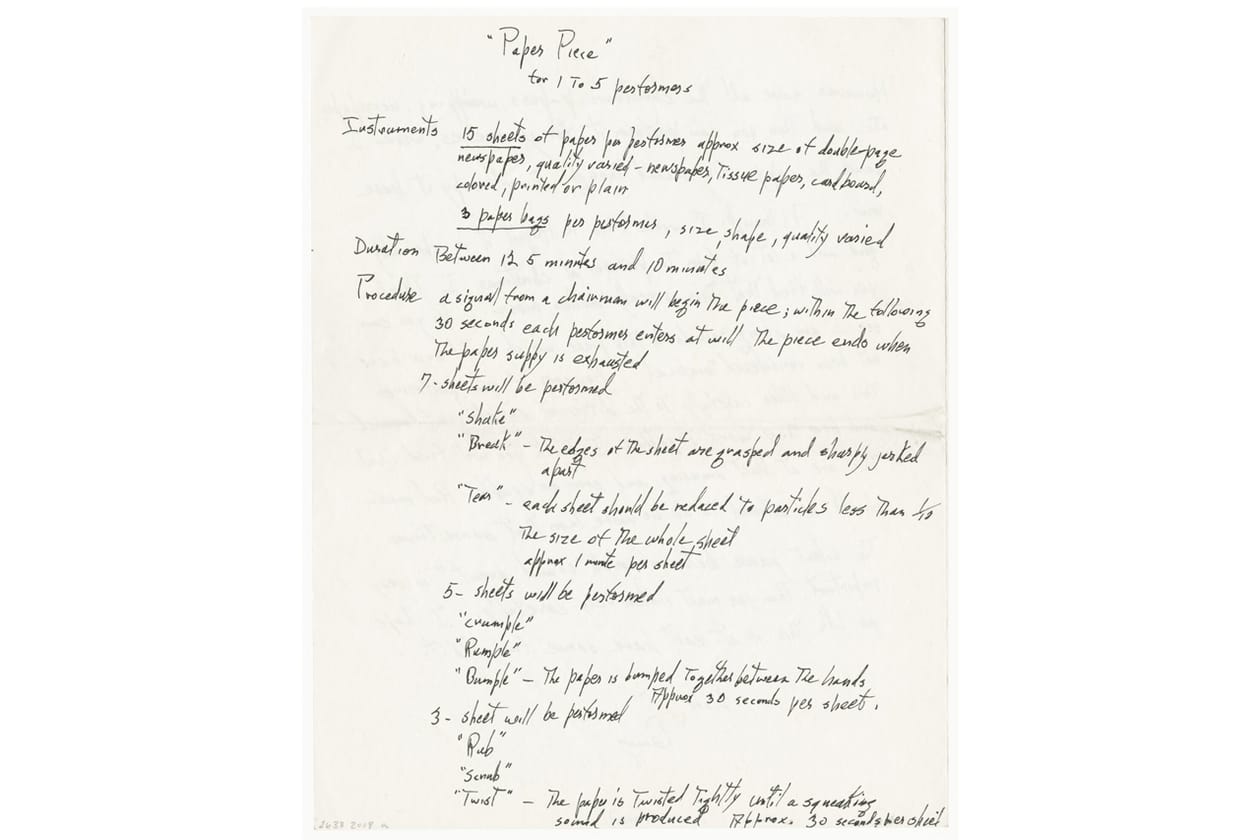 "Paper Piece"
for 1 To 5 performers
Instruments 15 sheets of paper per performer approx size of double page
newspaper, quality varied - newspaper, Tissue paper, cardboard,
colored, printed or plain
3 paper bags per performer, size, shape, quality varied
Duration Between 12 5 minutes and 10 minutes
Procedure a signal from a chairman will begin The piece; within The following
30 seconds each performer enters at will The piece ends when
The paper supply is exhausted
7 - sheets will be performed
"shake"
"Break" - The edges of The sheet are grasped and sharply jerked
apart
"Tear" - each sheet should be reduced To particles less Than 1/10
The size of The whole sheet
approx 1 minute per sheet
5 - sheets will be performed
"crumple"
"Rumple"
"Bumple" - The paper is bumped Together between The hands
Approx 30 seconds per sheet.
3 - sheet will be performed
"Rub"
"Scrub"
"Twist" - The paper is Twisted Tightly until a squeaking
sound is produced Approx. 30 seconds per sheet